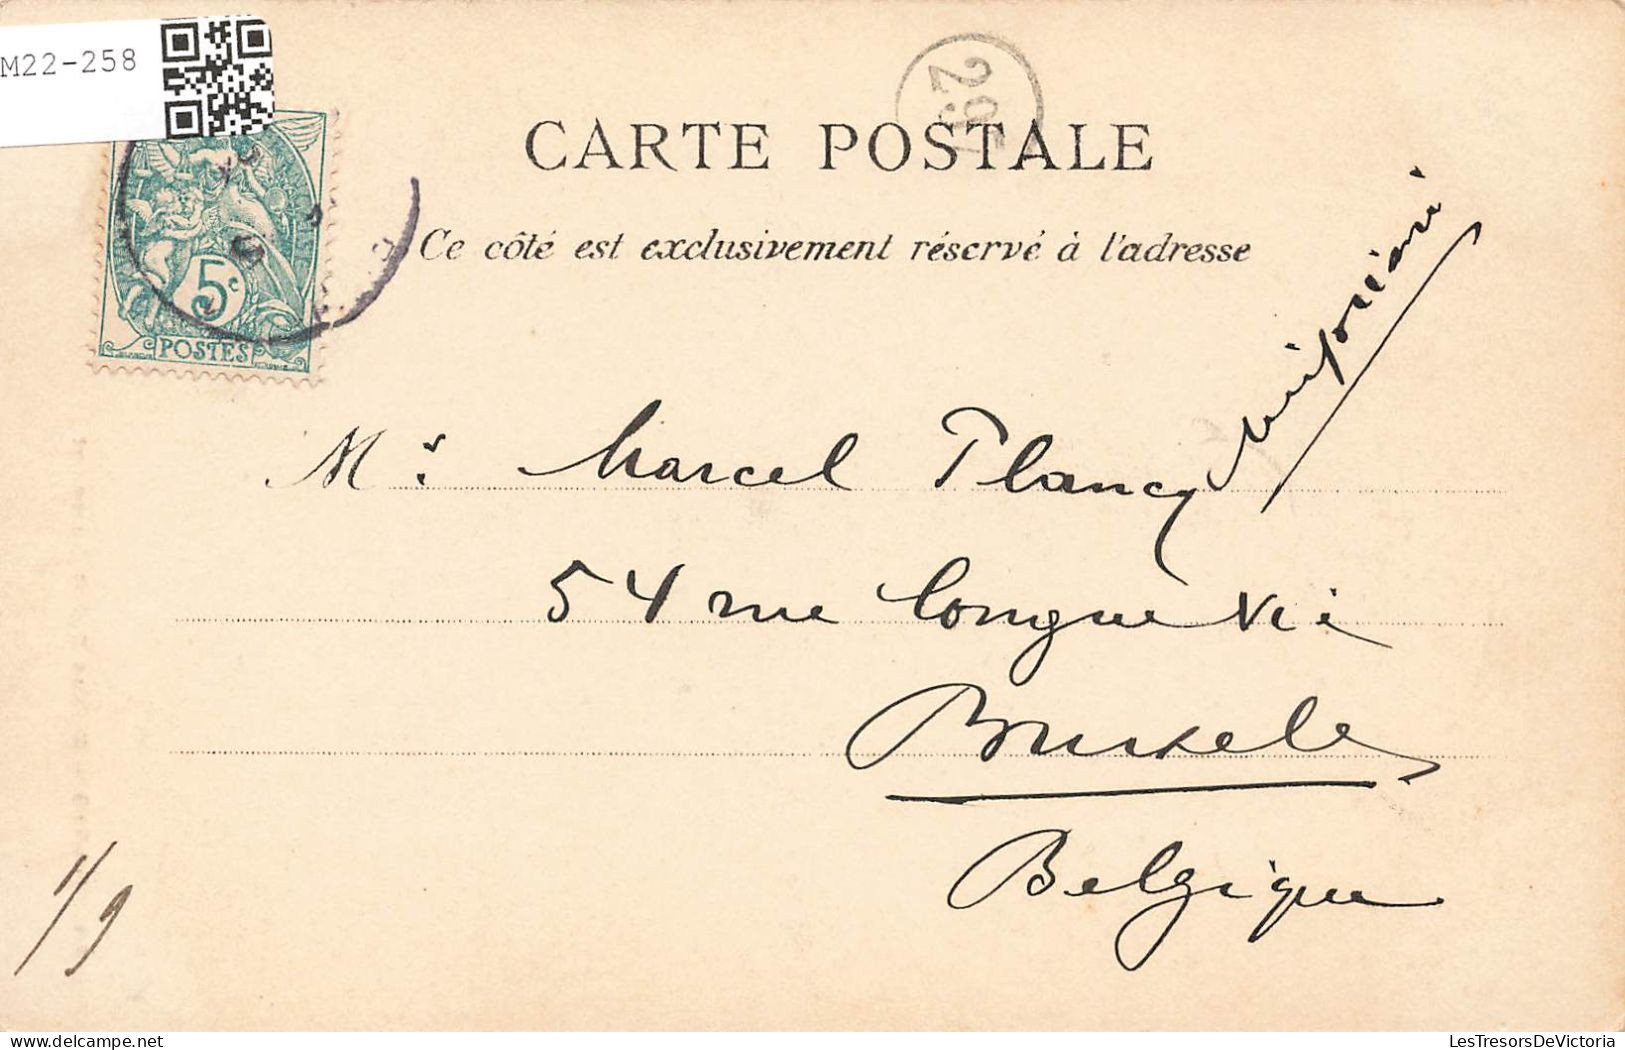 M22-258
CARTE POSTALE
Ce côté est exclusivement réservé à l'adresse
5c
POSTES
Mr Marcel Plancq
54 rue Longue Vie
Bruxelles
Belgique
LesTresorsDeVictoria